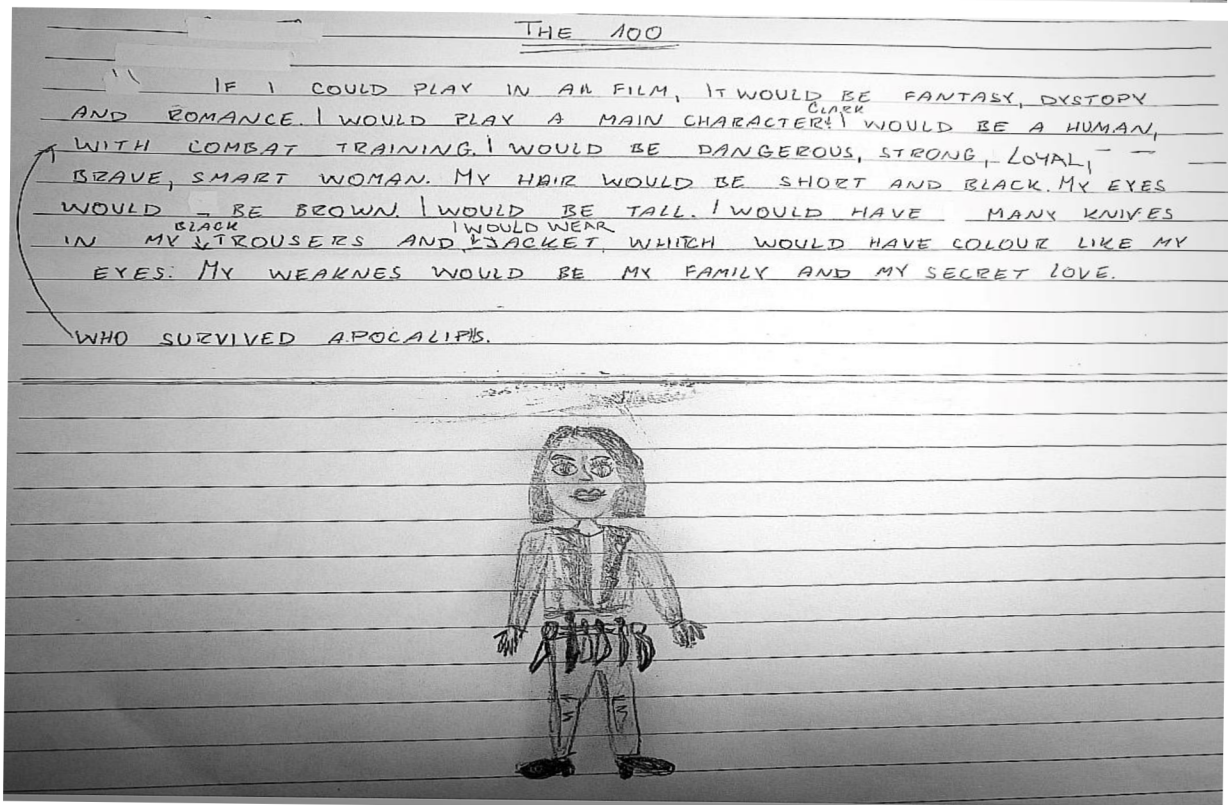 THE 100
IF I COULD PLAY IN A FILM, IT WOULD BE FANTASY, DYSTOPY
CLARK
AND ROMANCE. I WOULD PLAY A MAIN CHARACTER! I WOULD BE A HUMAN,
WITH COMBAT TRAINING. I WOULD BE DANGEROUS, STRONG, LOYAL,
BRAVE, SMART WOMAN. MY HAIR WOULD BE SHORT AND BLACK. MY EYES
WOULD BE BROWN. I WOULD BE TALL. I WOULD HAVE MANY KNIVES
BLACK I WOULD WEAR
IN MY TROUSERS AND JACKET, WHITCH WOULD HAVE COLOUR LIKE MY
EYES. MY WEAKNES WOULD BE MY FAMILY AND MY SECRET LOVE.
WHO SURVIVED